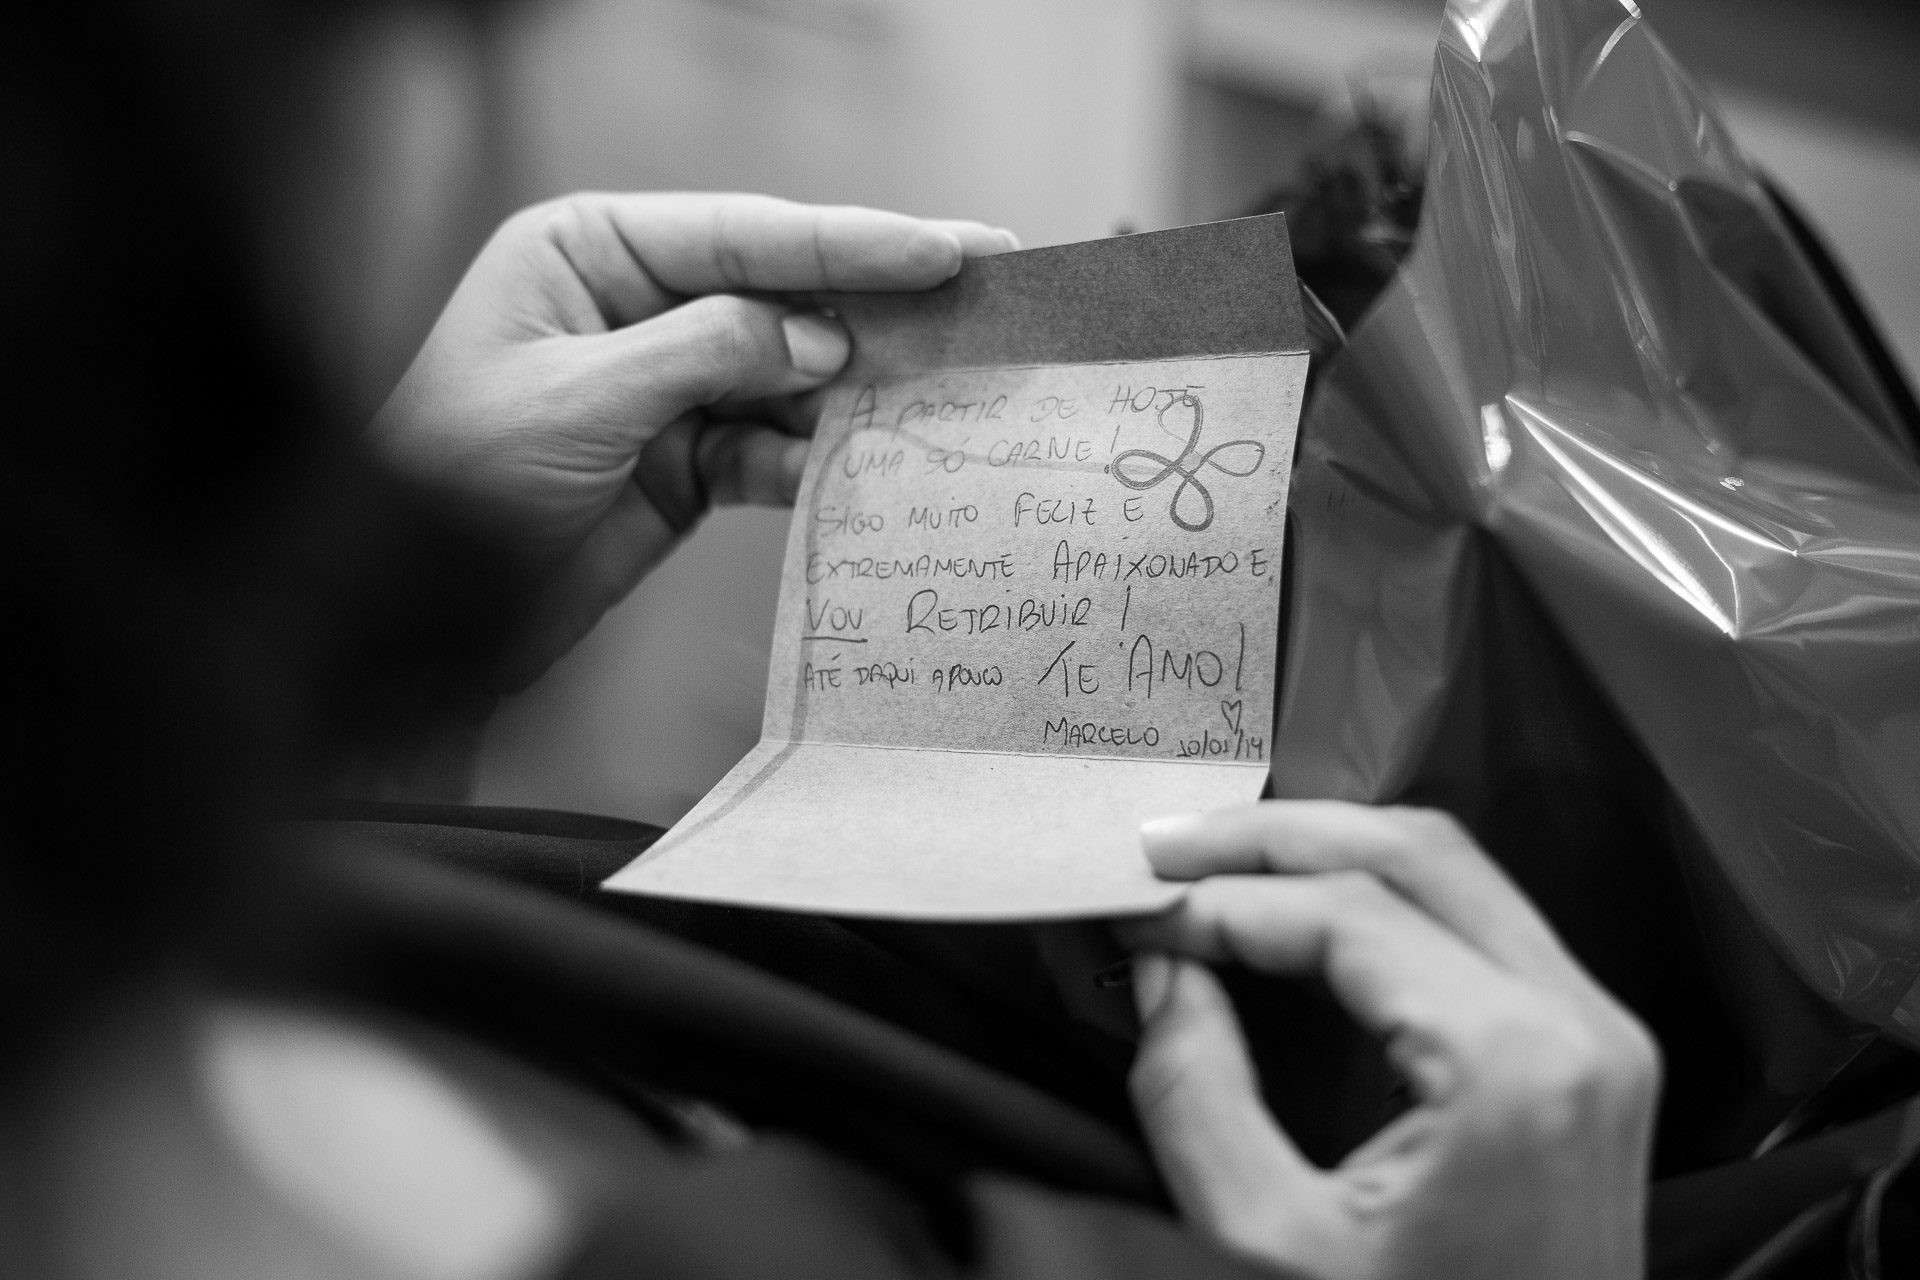 A PARTIR DE HOJE
UMA SÓ CARNE!
SIGO MUITO FELIZ E
EXTREMAMENTE APAIXONADO E
VOU RETRIBUIR!
ATÉ DAQUI APOUCO TE AMO!
MARCELO 10/01/14